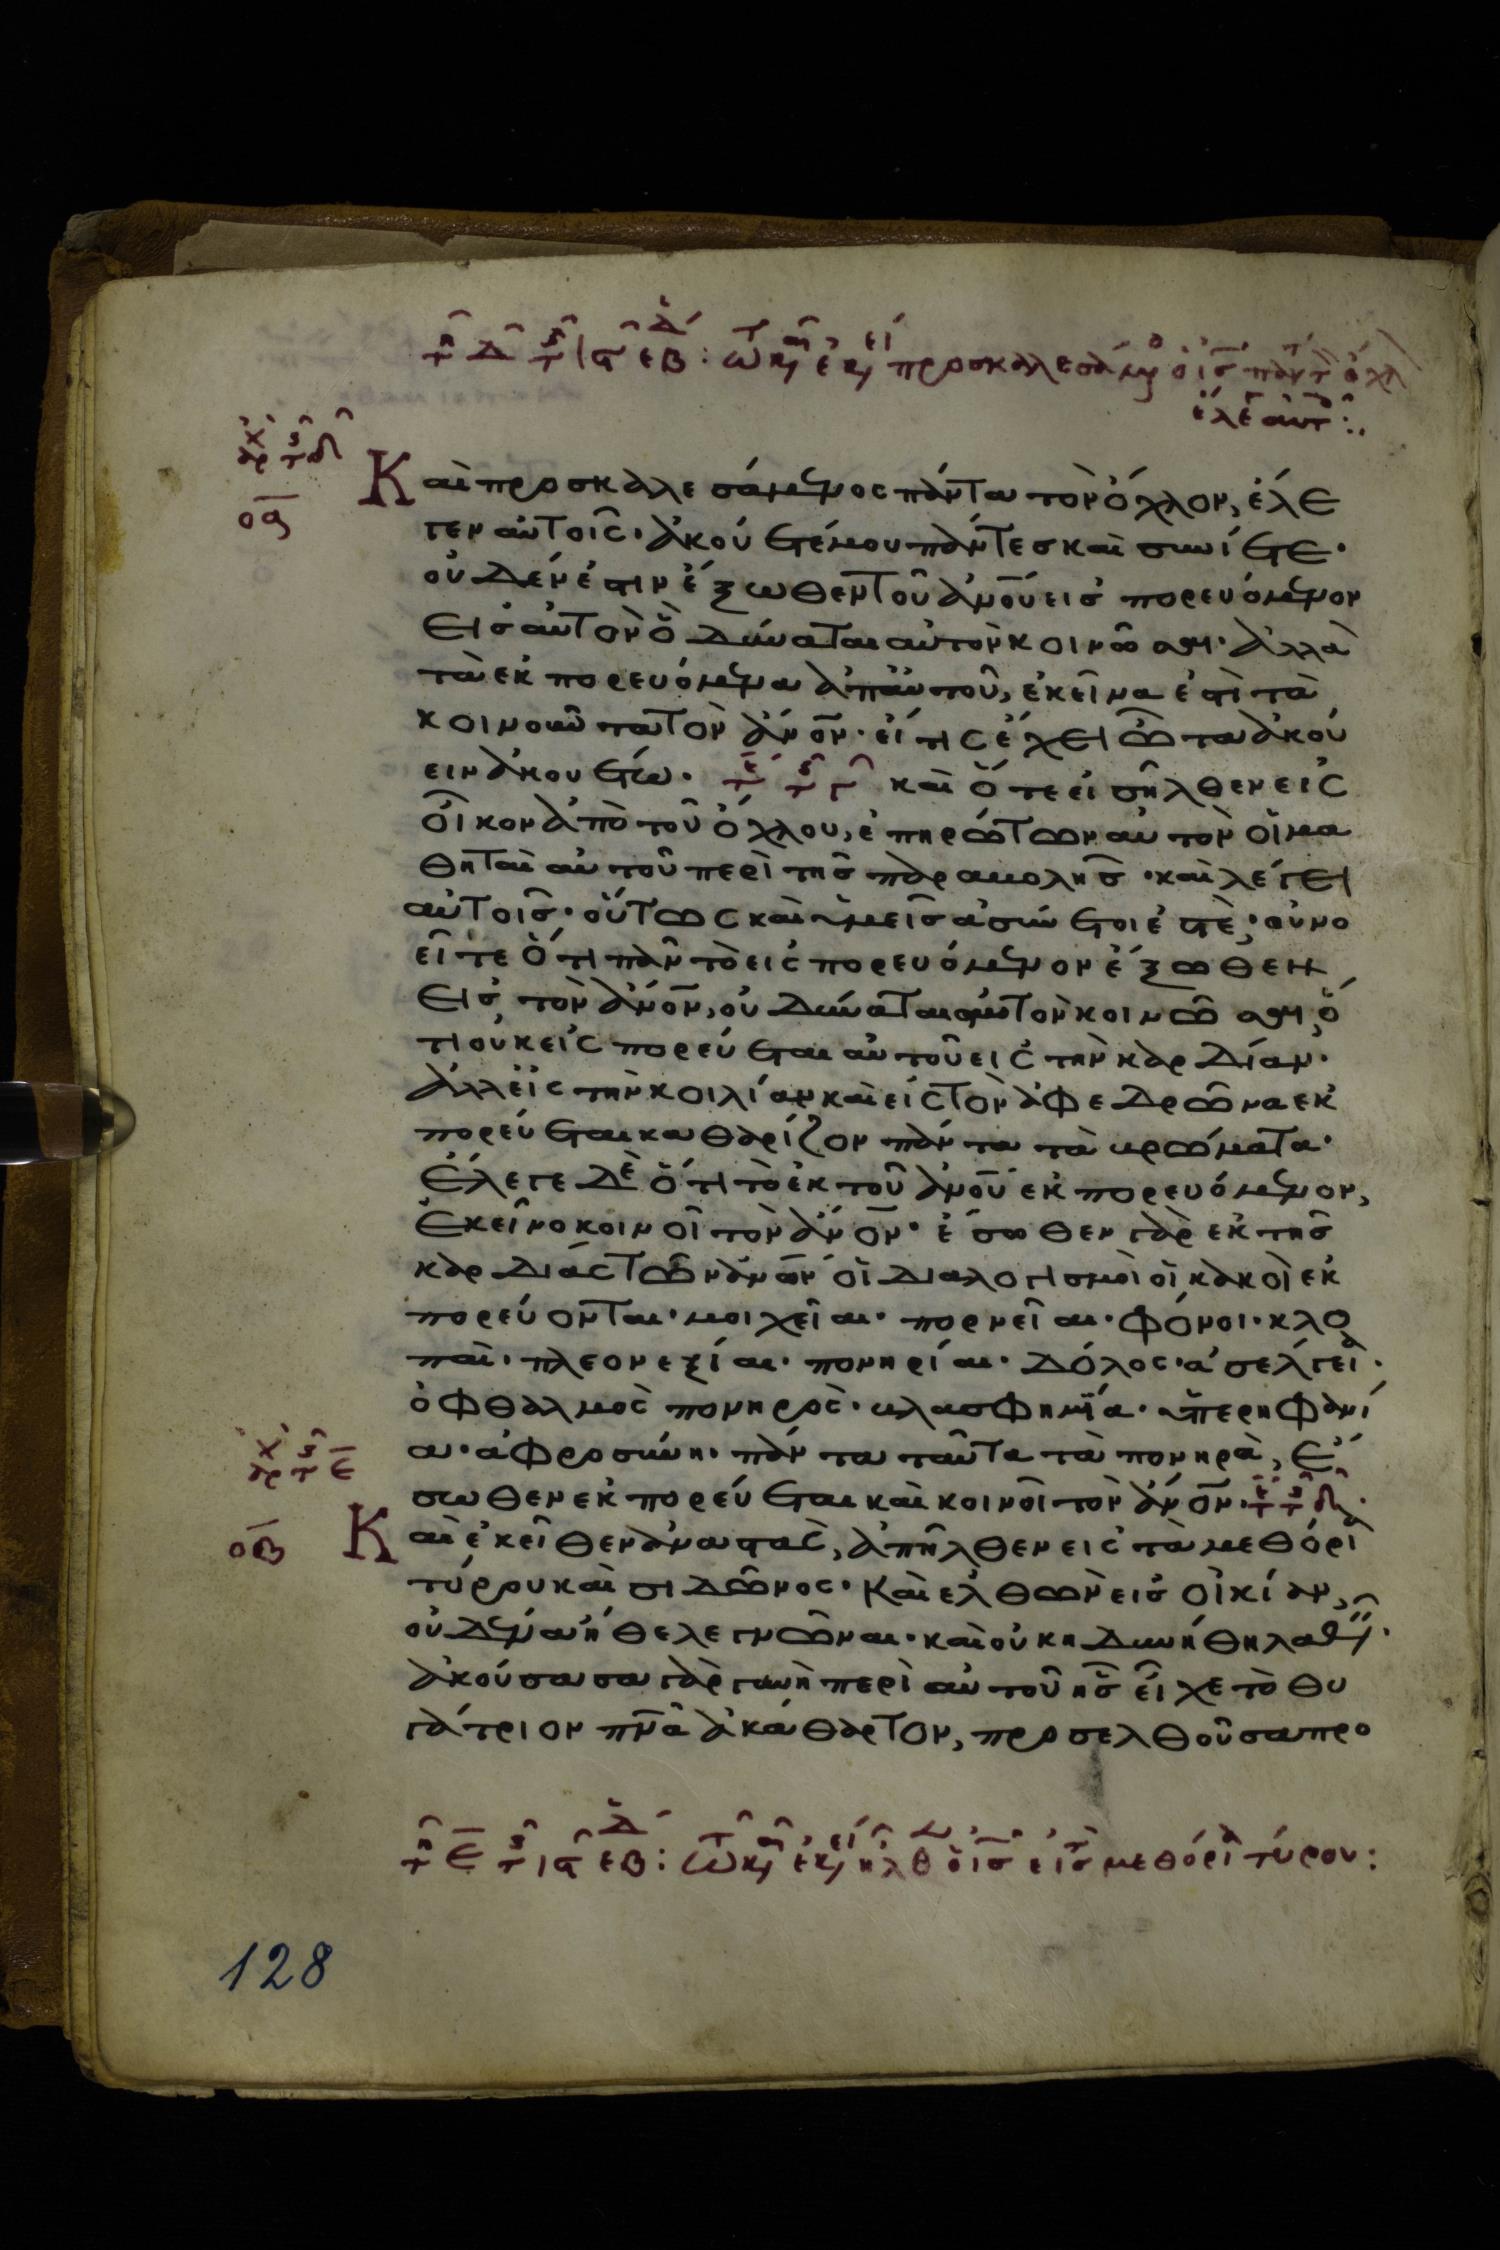 τη Δ τῆς ις ἑβδ: τῶ καιρῶ ἐκείνω προσκαλεσάμενος ὁ ις πάντα τὸν ὄχλον
ἔλεγεν αὐτοῖς:
ἀρχ τῆς δ
οα
Καὶ προσκαλεσάμενος πάντα τὸν ὄχλον, ἔλε
γεν αὐτοῖς· ἀκούετέ μου πάντες καὶ συνίετε·
οὐδέν ἐστιν ἔξωθεν τοῦ ἀνου εἰσπορευόμενον
εἰς αὐτὸν ὃ δύναται αὐτὸν κοινῶσαι· ἀλλὰ
τὰ ἐκπορευόμενα ἀπ αὐτοῦ, ἐκεῖνα ἐστὶ τὰ
κοινοῦντα τὸν ἀνον· εἴ τις ἔχει ὦτα ἀκού
ειν ἀκουέτω· καὶ ὅτε εἰσῆλθεν εἰς
οἶκον ἀπὸ τοῦ ὄχλου, ἐπηρώτων αὐτὸν οἱ μα
θηταὶ αὐτοῦ περὶ τῆς παραβολῆς· καὶ λέγει
αὐτοῖς· οὕτως καὶ ὑμεῖς ἀσύνετοί ἐστέ; οὐ νο
εῖτε ὅτι πᾶν τὸ εἰσπορευόμενον ἔξωθεν
εἰς τὸν ἀνον, οὐ δύναται αὐτὸν κοινῶσαι, ὅ
τι οὐκ εἰσπορεύεται αὐτοῦ εἰς τὴν καρδίαν·
ἀλλ εἰς τὴν κοιλίαν καὶ εἰς τὸν ἀφεδρῶνα ἐκ
πορεύεται καθαρίζον πάντα τὰ βρώματα·
ἔλεγε δὲ ὅτι τὸ ἐκ τοῦ ἀνου ἐκπορευόμενον,
ἐκεῖνο κοινοῖ τὸν ἀνον· ἔσωθεν γὰρ ἐκ τῆς
καρδίας τῶν ἀνων οἱ διαλογισμοὶ οἱ κακοὶ ἐκ
πορεύονται· μοιχεῖαι· πορνεῖαι· φόνοι· κλο
παὶ· πλεονεξίαι· πονηρίαι· δόλος· ἀσέλγεια·
ὀφθαλμὸς πονηρὸς· βλασφημΐα· ὑπερηφανί
α· ἀφροσύνη· πάντα ταῦτα τὰ πονηρὰ, ἔ
σωθεν ἐκπορεύεται καὶ κοινοῖ τὸν ἀνον·
ἀρχ τῆς ε
οβ
Καὶ ἐκεῖθεν ἀναστὰς, ἀπῆλθεν εἰς τὰ μεθόρια
τύρου καὶ σιδῶνος· Καὶ ἐλθὼν εἰς οἰκίαν,
οὐδένα ἤθελε γνῶναι· καὶ οὐκ ἠδυνήθη λαθεῖν·
ἀκούσασα γὰρ γυνὴ περὶ αὐτοῦ ἧς εἶχε τὸ θυ
γάτριον πνα ἀκάθαρτον, προσελθοῦσα προ
τη ε τῆς ις ἑβδ: τῶ καιρῶ ἐκείνω ἦλθεν ὁ ις εἰς τὰ μεθόρια τύρου:
128